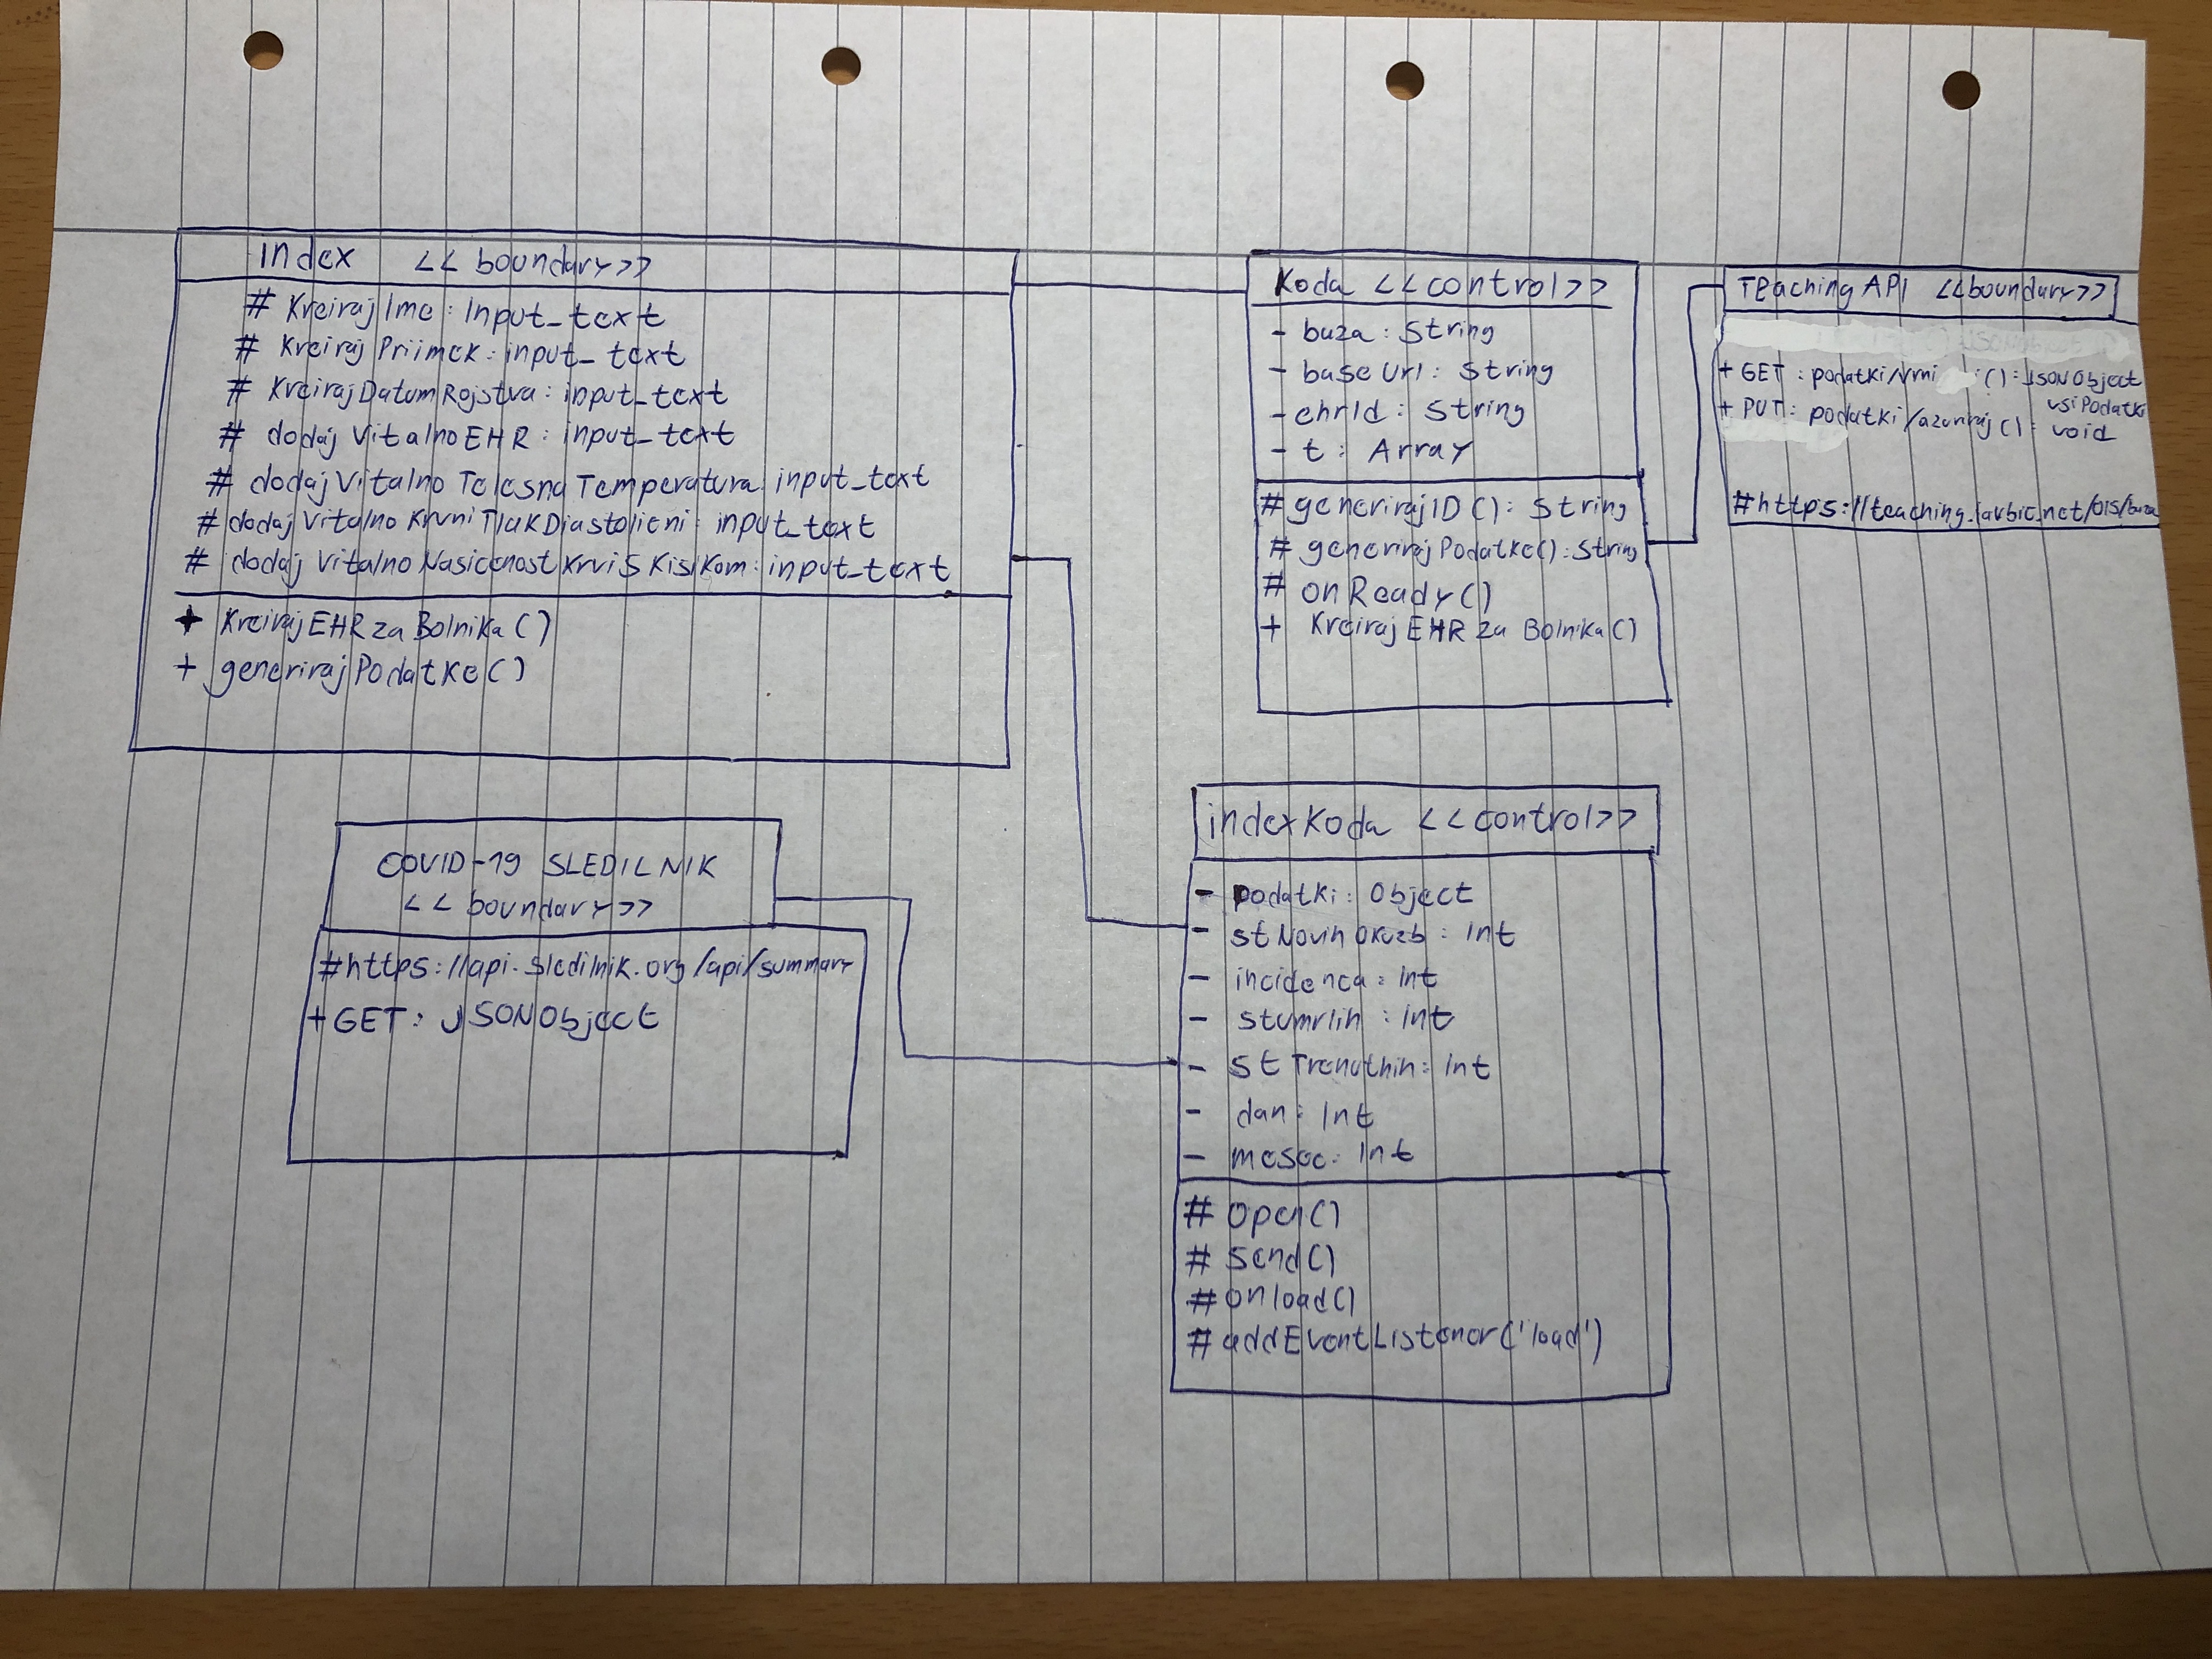 Index << boundary>>
# KreirajIme : Input_text
# KreirajPriimek : input_text
# KreirajDatumRojstva : input_text
# dodajVitalnoEHR : input_text
# dodajVitalnoTelesnaTemperatura : input_text
# dodajVitalnoKrvniTlakDiastolicni : input_text
# dodajVitalnoNasicenostKrviSKisikom : input_text
+ KreirajEHRzaBolnika()
+ generirajPodatke()
Koda <<control>>
- baza : String
- baseUrl : String
- ehrId : String
- t : Array
# generirajID() : String
# generirajPodatke() : String
# onReady()
+ KreirajEHRzaBolnika()
Teaching API <<boundary>>
+ GET : podatki/vrni () : JSONObject
vsiPodatki
+ PUT : podatki/azuriraj() : void
#https://teaching.lavbic.net/OIS/baza
COVID-19 SLEDILNIK
<< boundary>>
#https://api.sledilnik.org/api/summary
+GET : JSONObject
indexKoda <<control>>
- podatki : Object
- stNovihOkuzb : Int
- incidenca : Int
- stUmrlih : Int
- stTrenutnih : Int
- dan : Int
- mesec : Int
# open()
# send()
# onload()
# addEventListener('load')